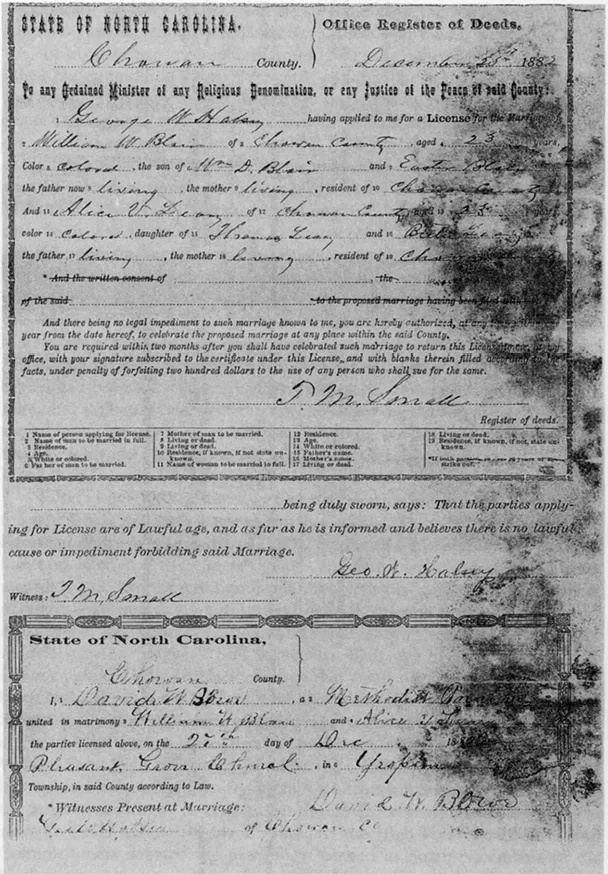 STATE OF NORTH CAROLINA,
Office Register of Deeds,
Chowan County.
December 25th 1882
To any Ordained Minister of any Religious Denomination, or any Justice of the Peace of said County:
1 George W Halsey having applied to me for a License for the Marriage
2 William W. Blair of 3 Chowan County, aged 4 23 years,
Color 5 Colored, the son of 6 Wm D. Blair and 7
the father now 8 living, the mother 9 living, resident of 10 Chowan County
And 11 Alice V. of 12 Chowan County aged 13 years
color 14 Colored, daughter of 15 Thomas and 16
the father 17 living, the mother 18 living, resident of 19
* And the written consent of , the
of the said to the proposed marriage having been filed with
And there being no legal impediment to such marriage known to me, you are hereby authorized, at any time within one
year from the date hereof, to celebrate the proposed marriage at any place within the said County.
You are required within two months after you shall have celebrated such marriage to return this License to me, at my
office, with your signature subscribed to the certificate under this License, and with blanks therein filled according to the
facts, under penalty of forfeiting two hundred dollars to the use of any person who shall sue for the same.
T. M. Small
Register of deeds.
1 Name of person applying for license.
2 Name of man to be married in full.
3 Residence.
4 Age.
5 White or colored.
6 Father of man to be married.
7 Mother of man to be married.
8 Living or dead.
9 Living or dead.
10 Residence, if known, if not state unknown.
11 Name of woman to be married in full.
12 Residence.
13 Age.
14 White or colored.
15 Father's name.
16 Mother's name.
17 Living or dead.
18 Living or dead.
19 Residence, if known, if not, state unknown.
*If both parties
strike out.
being duly sworn, says: That the parties apply-
ing for License are of Lawful age, and as far as he is informed and believes there is no lawful
cause or impediment forbidding said Marriage.
Geo. W. Halsey
Witness: T. M. Small
State of North Carolina,
Chowan County.
I, David W. Blowe, a Methodist
united in matrimony William W Blair and Alice
the parties licensed above, on the 27th day of Dec 18
Pleasant Grove Church, in
Township, in said County according to Law.
*Witnesses Present at Marriage:
David W. Blowe
of Chowan Co